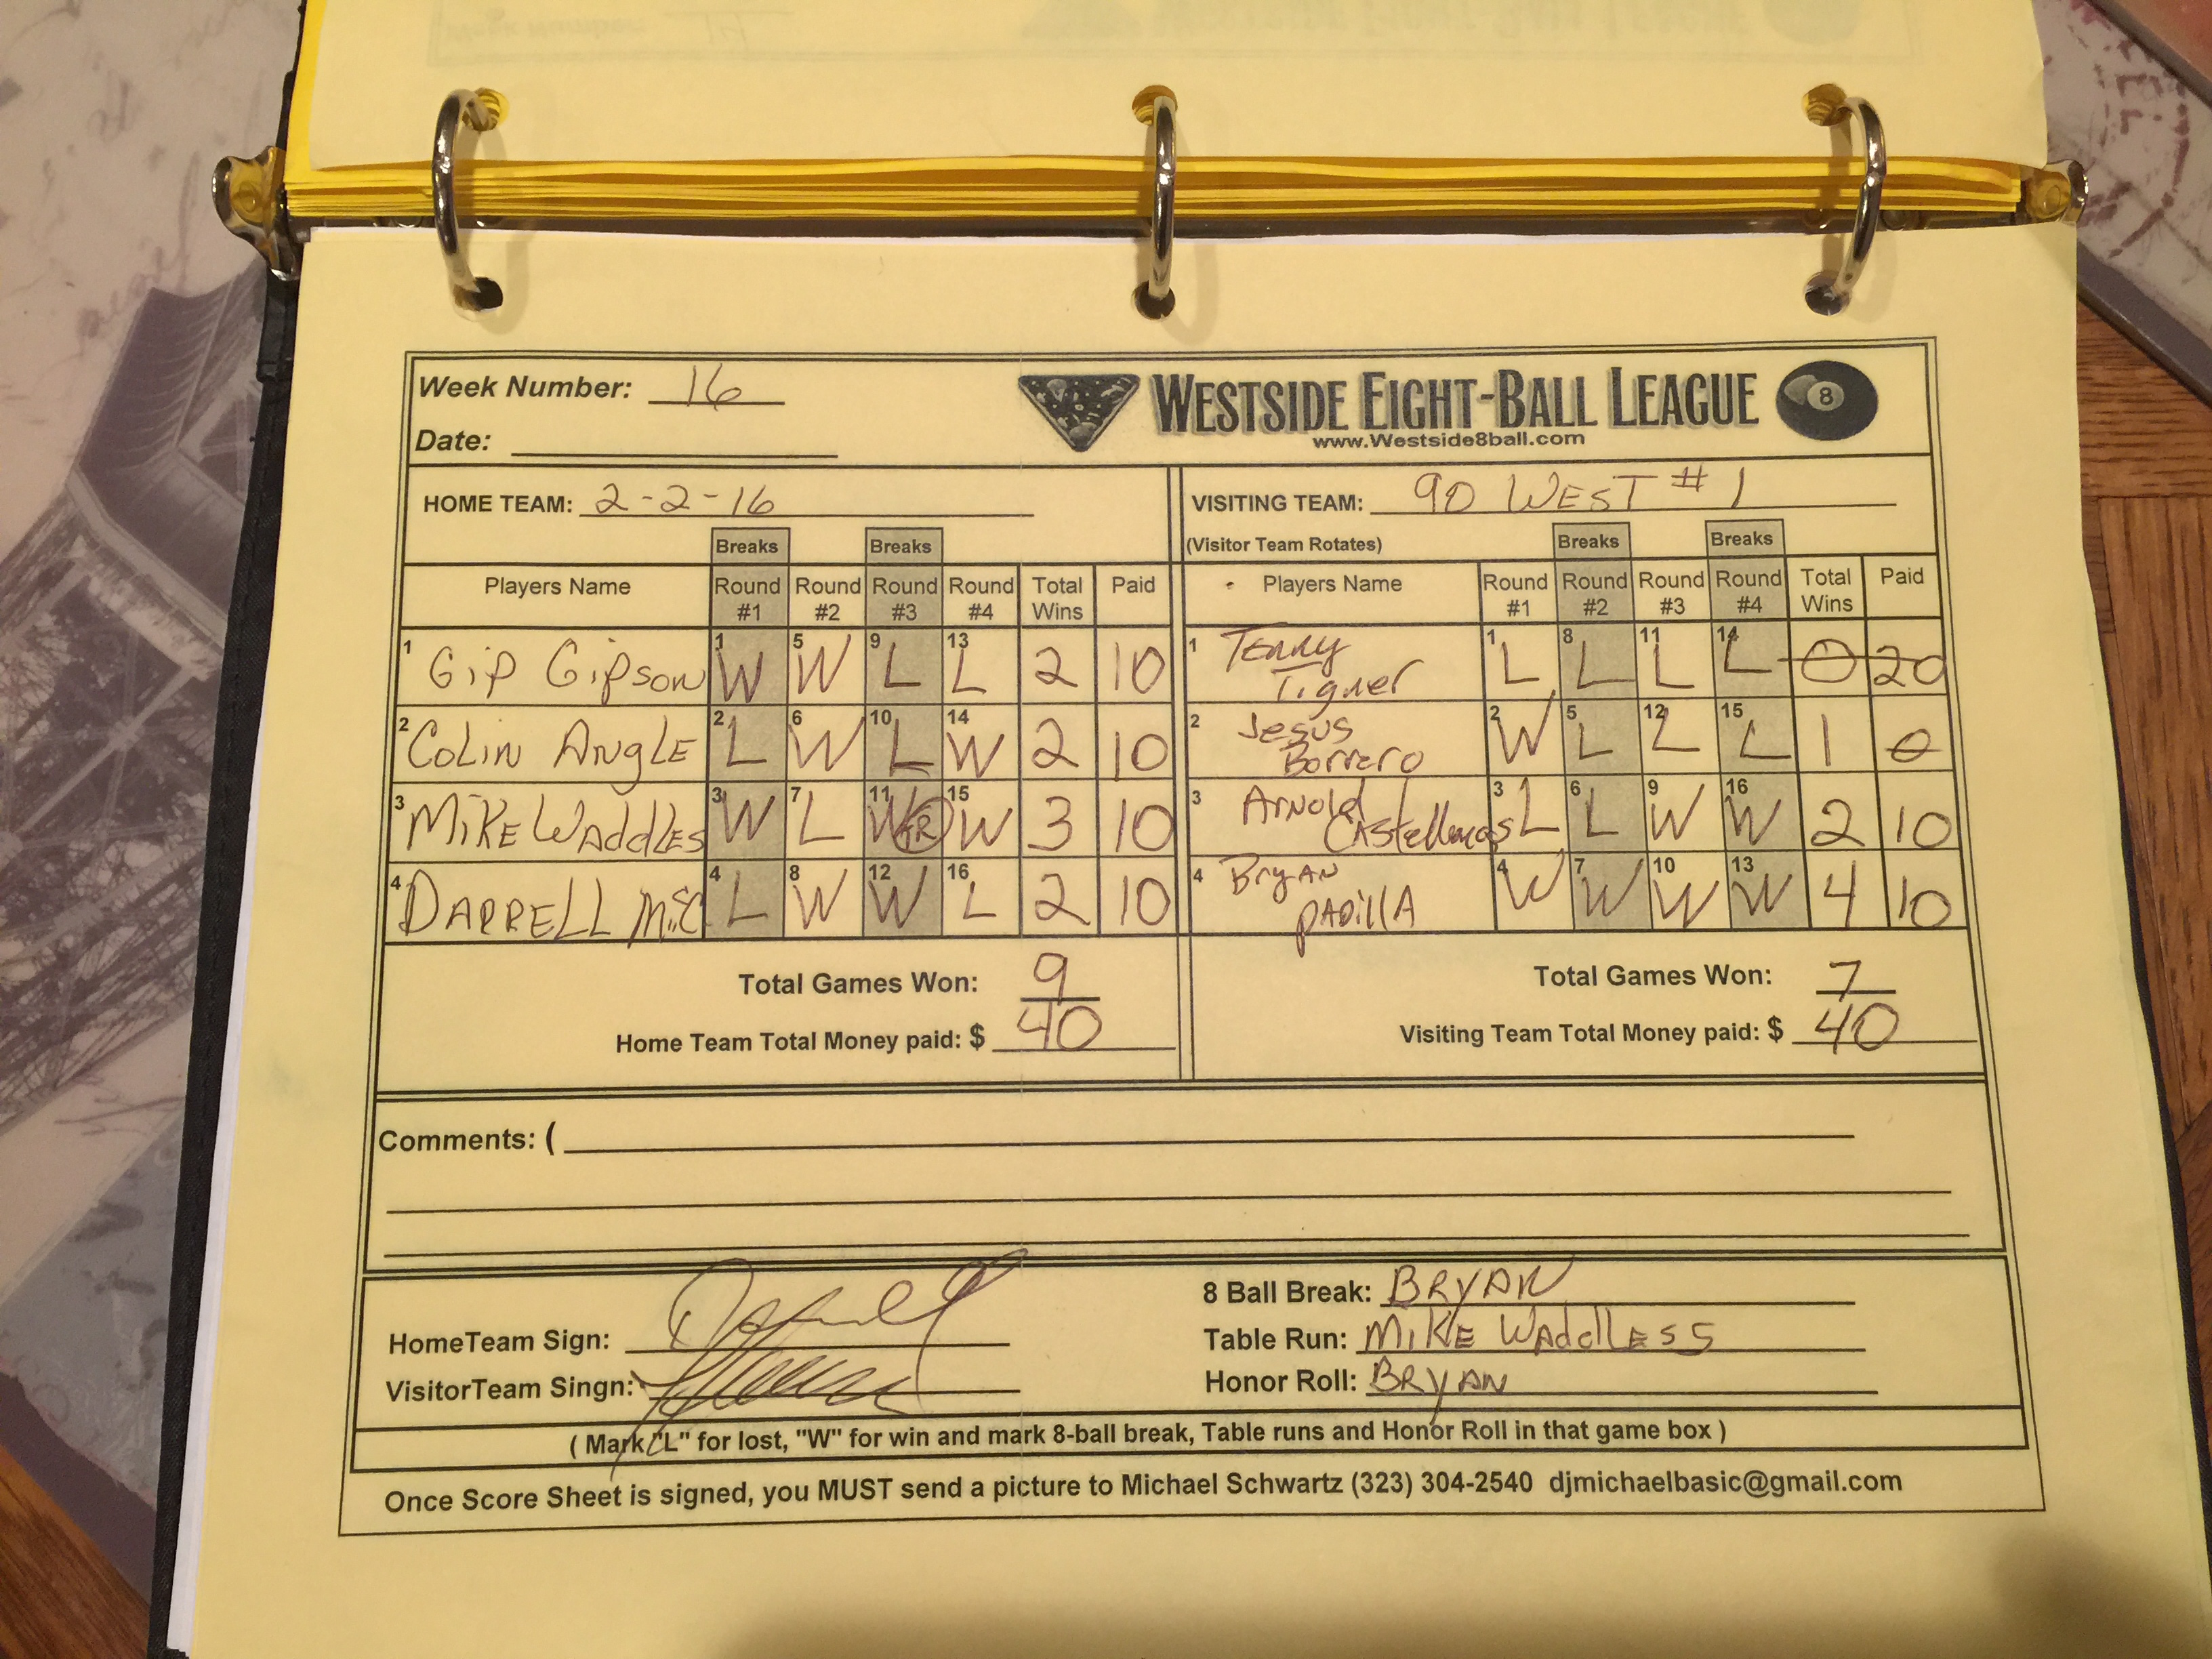 Week Number: 16
WESTSIDE EIGHT-BALL LEAGUE 8
www.Westside8ball.com
Date:
HOME TEAM: 2-2-16
VISITING TEAM: 90 WEST #1
(Visitor Team Rotates)
Breaks Breaks Breaks Breaks
Players Name Round #1 Round #2 Round #3 Round #4 Total Wins Paid Players Name Round #1 Round #2 Round #3 Round #4 Total Wins Paid
1 Gip Gipson 1 W 5 W 9 L 13 L 2 10 1 Terry Tigner 1 L 8 L 11 L 14 L 0 20
2 Colin Angle 2 L 6 W 10 L 14 W 2 10 2 Jesus Borrero 2 W 5 L 12 L 15 L 1 0
3 Mike Waddles 3 W 7 L 11 W TR 15 W 3 10 3 Arnold Castellenos 3 L 6 L 9 W 16 W 2 10
4 DARRELL McC 4 L 8 W 12 W 16 L 2 10 4 Bryan PADillA 4 W 7 W 10 W 13 W 4 10
Total Games Won: 9 Total Games Won: 7
Home Team Total Money paid: $ 40 Visiting Team Total Money paid: $ 40
Comments: (
HomeTeam Sign:
VisitorTeam Singn:
8 Ball Break: BRYAN
Table Run: MIKE WAddLESS
Honor Roll: BRYAN
( Mark "L" for lost, "W" for win and mark 8-ball break, Table runs and Honor Roll in that game box )
Once Score Sheet is signed, you MUST send a picture to Michael Schwartz (323) 304-2540 djmichaelbasic@gmail.com